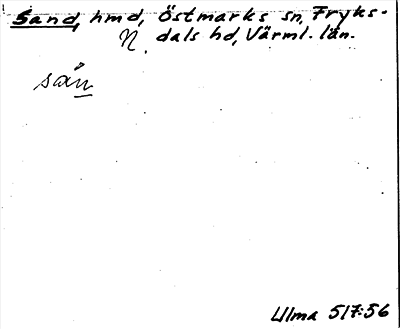 Sand, hmd, Östmarks sn, Fryks-
N. dals hd, Värml. län.
sån
Ulma 517:56